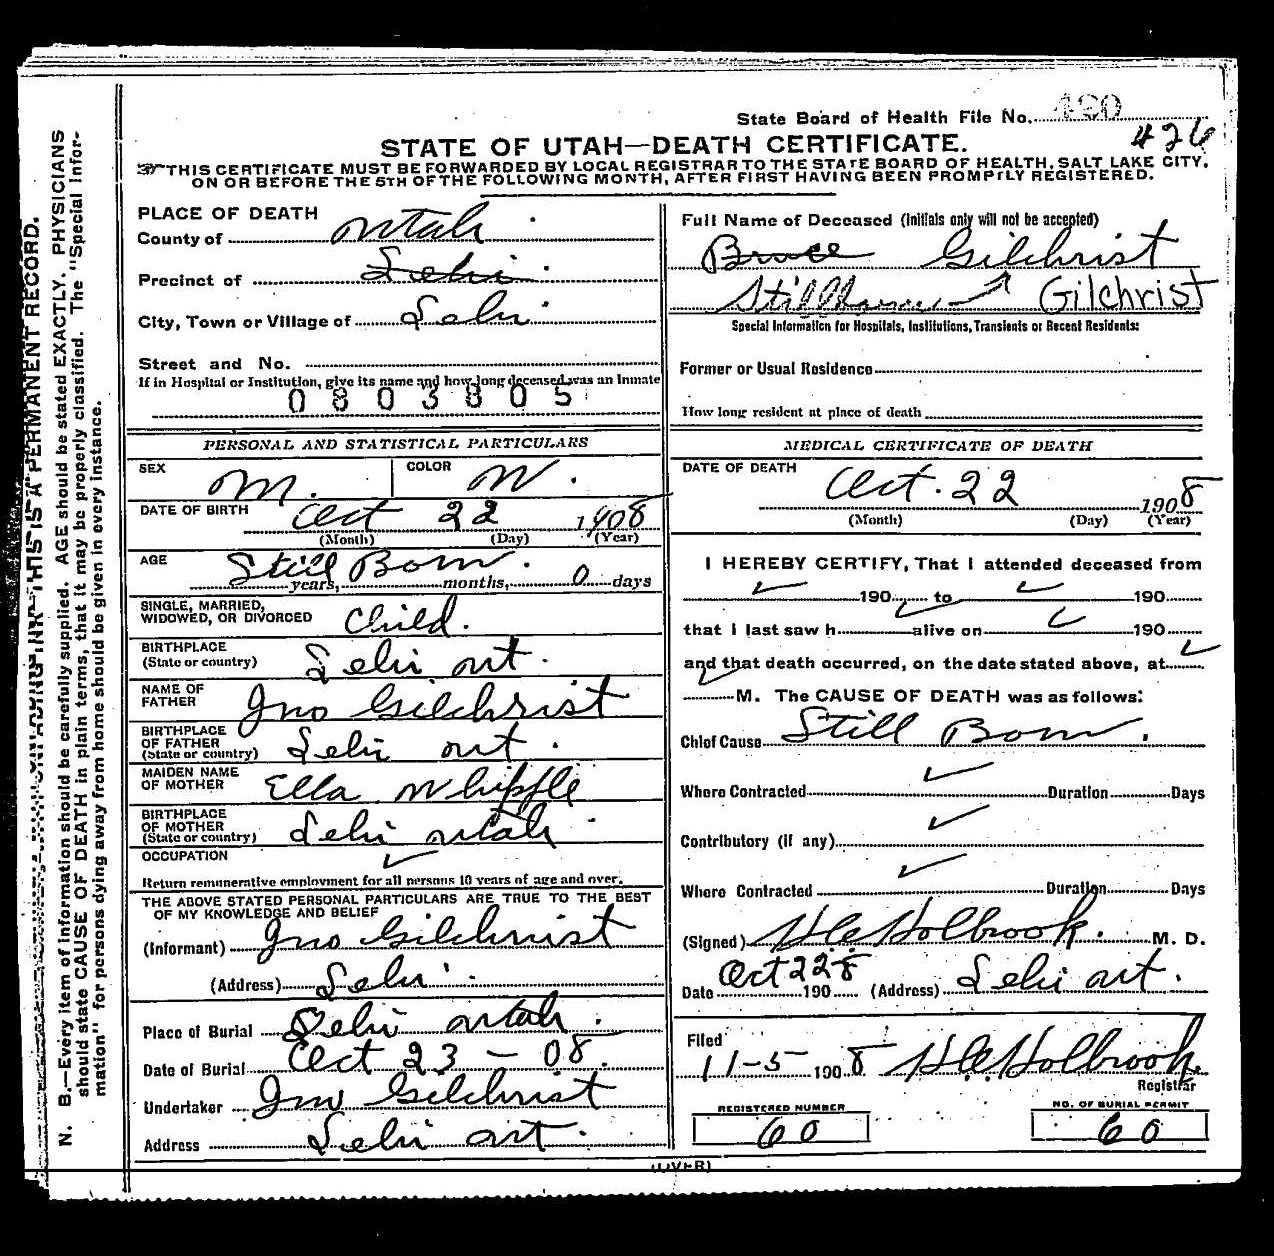 State Board of Health File No. 490
426
STATE OF UTAH—DEATH CERTIFICATE.
THIS CERTIFICATE MUST BE FORWARDED BY LOCAL REGISTRAR TO THE STATE BOARD OF HEALTH, SALT LAKE CITY,
ON OR BEFORE THE 5TH OF THE FOLLOWING MONTH, AFTER FIRST HAVING BEEN PROMPTLY REGISTERED.
N. B.—Every item of information should be carefully supplied. AGE should be stated EXACTLY. PHYSICIANS
should state CAUSE OF DEATH in plain terms, that it may be properly classified. The "Special Infor-
mation" for persons dying away from home should be given in every instance.
THIS IS A PERMANENT RECORD.
PLACE OF DEATH
County of Utah
Precinct of Lehi
City, Town or Village of Lehi
Street and No.
If in Hospital or Institution, give its name and how long deceased was an inmate
0803805
PERSONAL AND STATISTICAL PARTICULARS
SEX M. COLOR W.
DATE OF BIRTH Oct 22 1908
(Month) (Day) (Year)
AGE Still Born
years, months, 0 days
SINGLE, MARRIED,
WIDOWED, OR DIVORCED Child.
BIRTHPLACE
(State or country) Lehi Ut.
NAME OF
FATHER Jno Gilchrist
BIRTHPLACE
OF FATHER
(State or country) Lehi Ut.
MAIDEN NAME
OF MOTHER Ella Whipple
BIRTHPLACE
OF MOTHER
(State or country) Lehi Utah
OCCUPATION
Return remunerative employment for all persons 10 years of age and over.
THE ABOVE STATED PERSONAL PARTICULARS ARE TRUE TO THE BEST
OF MY KNOWLEDGE AND BELIEF
(Informant) Jno Gilchrist
(Address) Lehi
Place of Burial Lehi Utah.
Date of Burial Oct 23 — 08.
Undertaker Jno Gilchrist
Address Lehi Ut.
Full Name of Deceased (Initials only will not be accepted)
Bruce Gilchrist
Stillborn Gilchrist
Special Information for Hospitals, Institutions, Transients or Recent Residents:
Former or Usual Residence
How long resident at place of death
MEDICAL CERTIFICATE OF DEATH
DATE OF DEATH Oct. 22 1908
(Month) (Day) (Year)
I HEREBY CERTIFY, That I attended deceased from
190 to 190
that I last saw h alive on 190
and that death occurred, on the date stated above, at
M. The CAUSE OF DEATH was as follows:
Chief Cause Still Born.
Where Contracted Duration Days
Contributory (if any)
Where Contracted Duration Days
(Signed) Holbrook. M. D.
Date Oct 22 8 190 (Address) Lehi Ut.
Filed
11-5 1908 Holbrook
Registrar
REGISTERED NUMBER
60
NO. OF BURIAL PERMIT
60
(OVER)